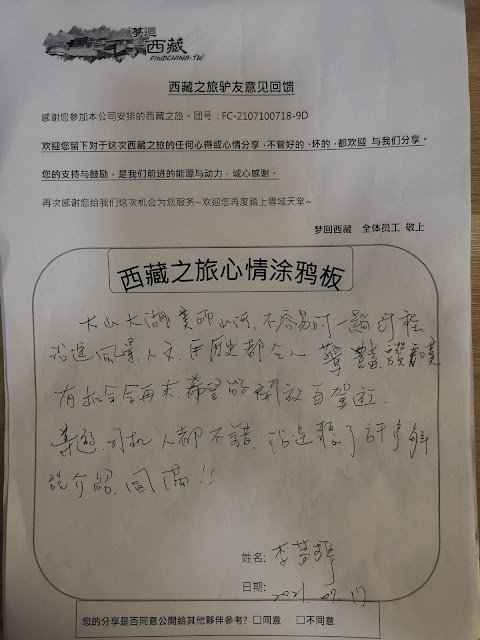 梦迴
西藏
FINDCHINA.TW
西藏之旅驴友意见回馈
感谢您参加本公司安排的西藏之旅。团号：FC-2107100718-9D
欢迎您留下对于这次西藏之旅的任何心得或心情分享，不管好的、坏的，都欢迎 与我们分享。
您的支持与鼓励，是我们前进的能源与动力，诚心感谢。
再次感谢您给我们这次机会为您服务~欢迎您再度踏上雪域天堂~
梦回西藏 全体员工 敬上
西藏之旅心情涂鸦板
大山大湖美的山河，不容易的一趟行程
沿途風景、人文、歷史都令人驚豔、震撼
有机会会再来，希望能開放自駕遊．
導遊、司机人都不錯，沿途講了許多解
說介紹，圓滿！！
姓名: 李
日期: 2021. 07. 17
您的分享是否同意公開給其他夥伴參考？ □同意 □不同意